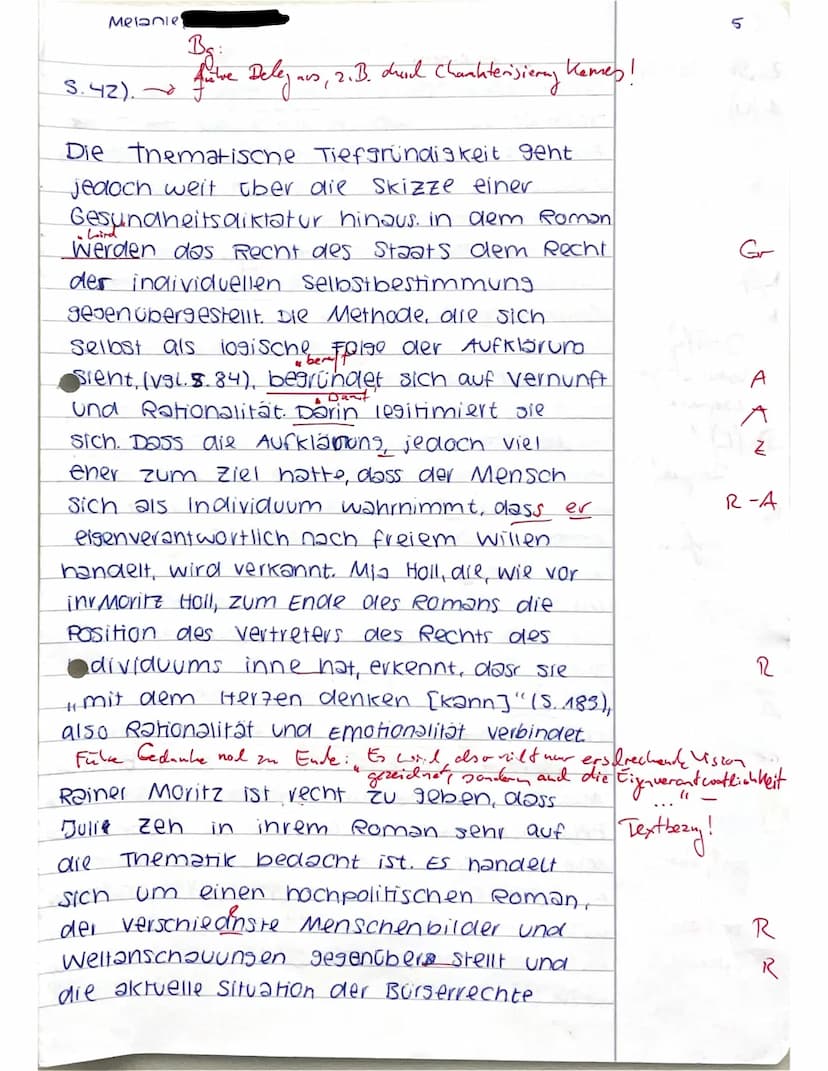 Melanie
5
Bg:
führe Beleg aus, z.B. durch Charakterisierung Kramers!
S.42). →
Die thematische Tiefgründigkeit geht
jedoch weit über die Skizze einer
Gesundheitsdiktatur hinaus. in dem Roman
wird
werden das Recht des Staats dem Recht
Gr
der individuellen Selbstbestimmung
gegenübergestellt. Die Methode, die sich
selbst als logische Folge der Aufklärung
"beruft
sieht, (vgl. S. 84), begründet sich auf Vernunft
A
Damit
und Rationalität. Darin legitimiert sie
A
sich. Dass die Aufklärung, jedoch viel
Z
eher zum Ziel hatte, dass der Mensch
sich als Individuum wahrnimmt, dass er
R-A
eigenverantwortlich nach freiem Willen
handelt, wird verkannt. Mia Holl, die, wie vor
ihr Moritz Holl, zum Ende des Romans die
Position des Vertreters des Rechts des
dividuums inne hat, erkennt, dass sie
R
„mit dem Herzen denken [kann]" (S. 183),
also Rationalität und Emotionalität verbindet
Führe Gedanke noch zu Ende: "Es wird also nicht nur erschreckende Vision
gezeichnet, sondern auch die Eigenverantwortlichkeit
..." –
Rainer Moritz ist recht zu geben, dass
Julie Zeh in ihrem Roman sehr auf
Textbezug!
die Thematik bedacht ist. Es handelt
sich um einen hochpolitischen Roman,
e
der verschiednste Menschenbilder und
R
Weltanschauungen gegenüber stellt und
R
die aktuelle Situation der Bürgerrechte